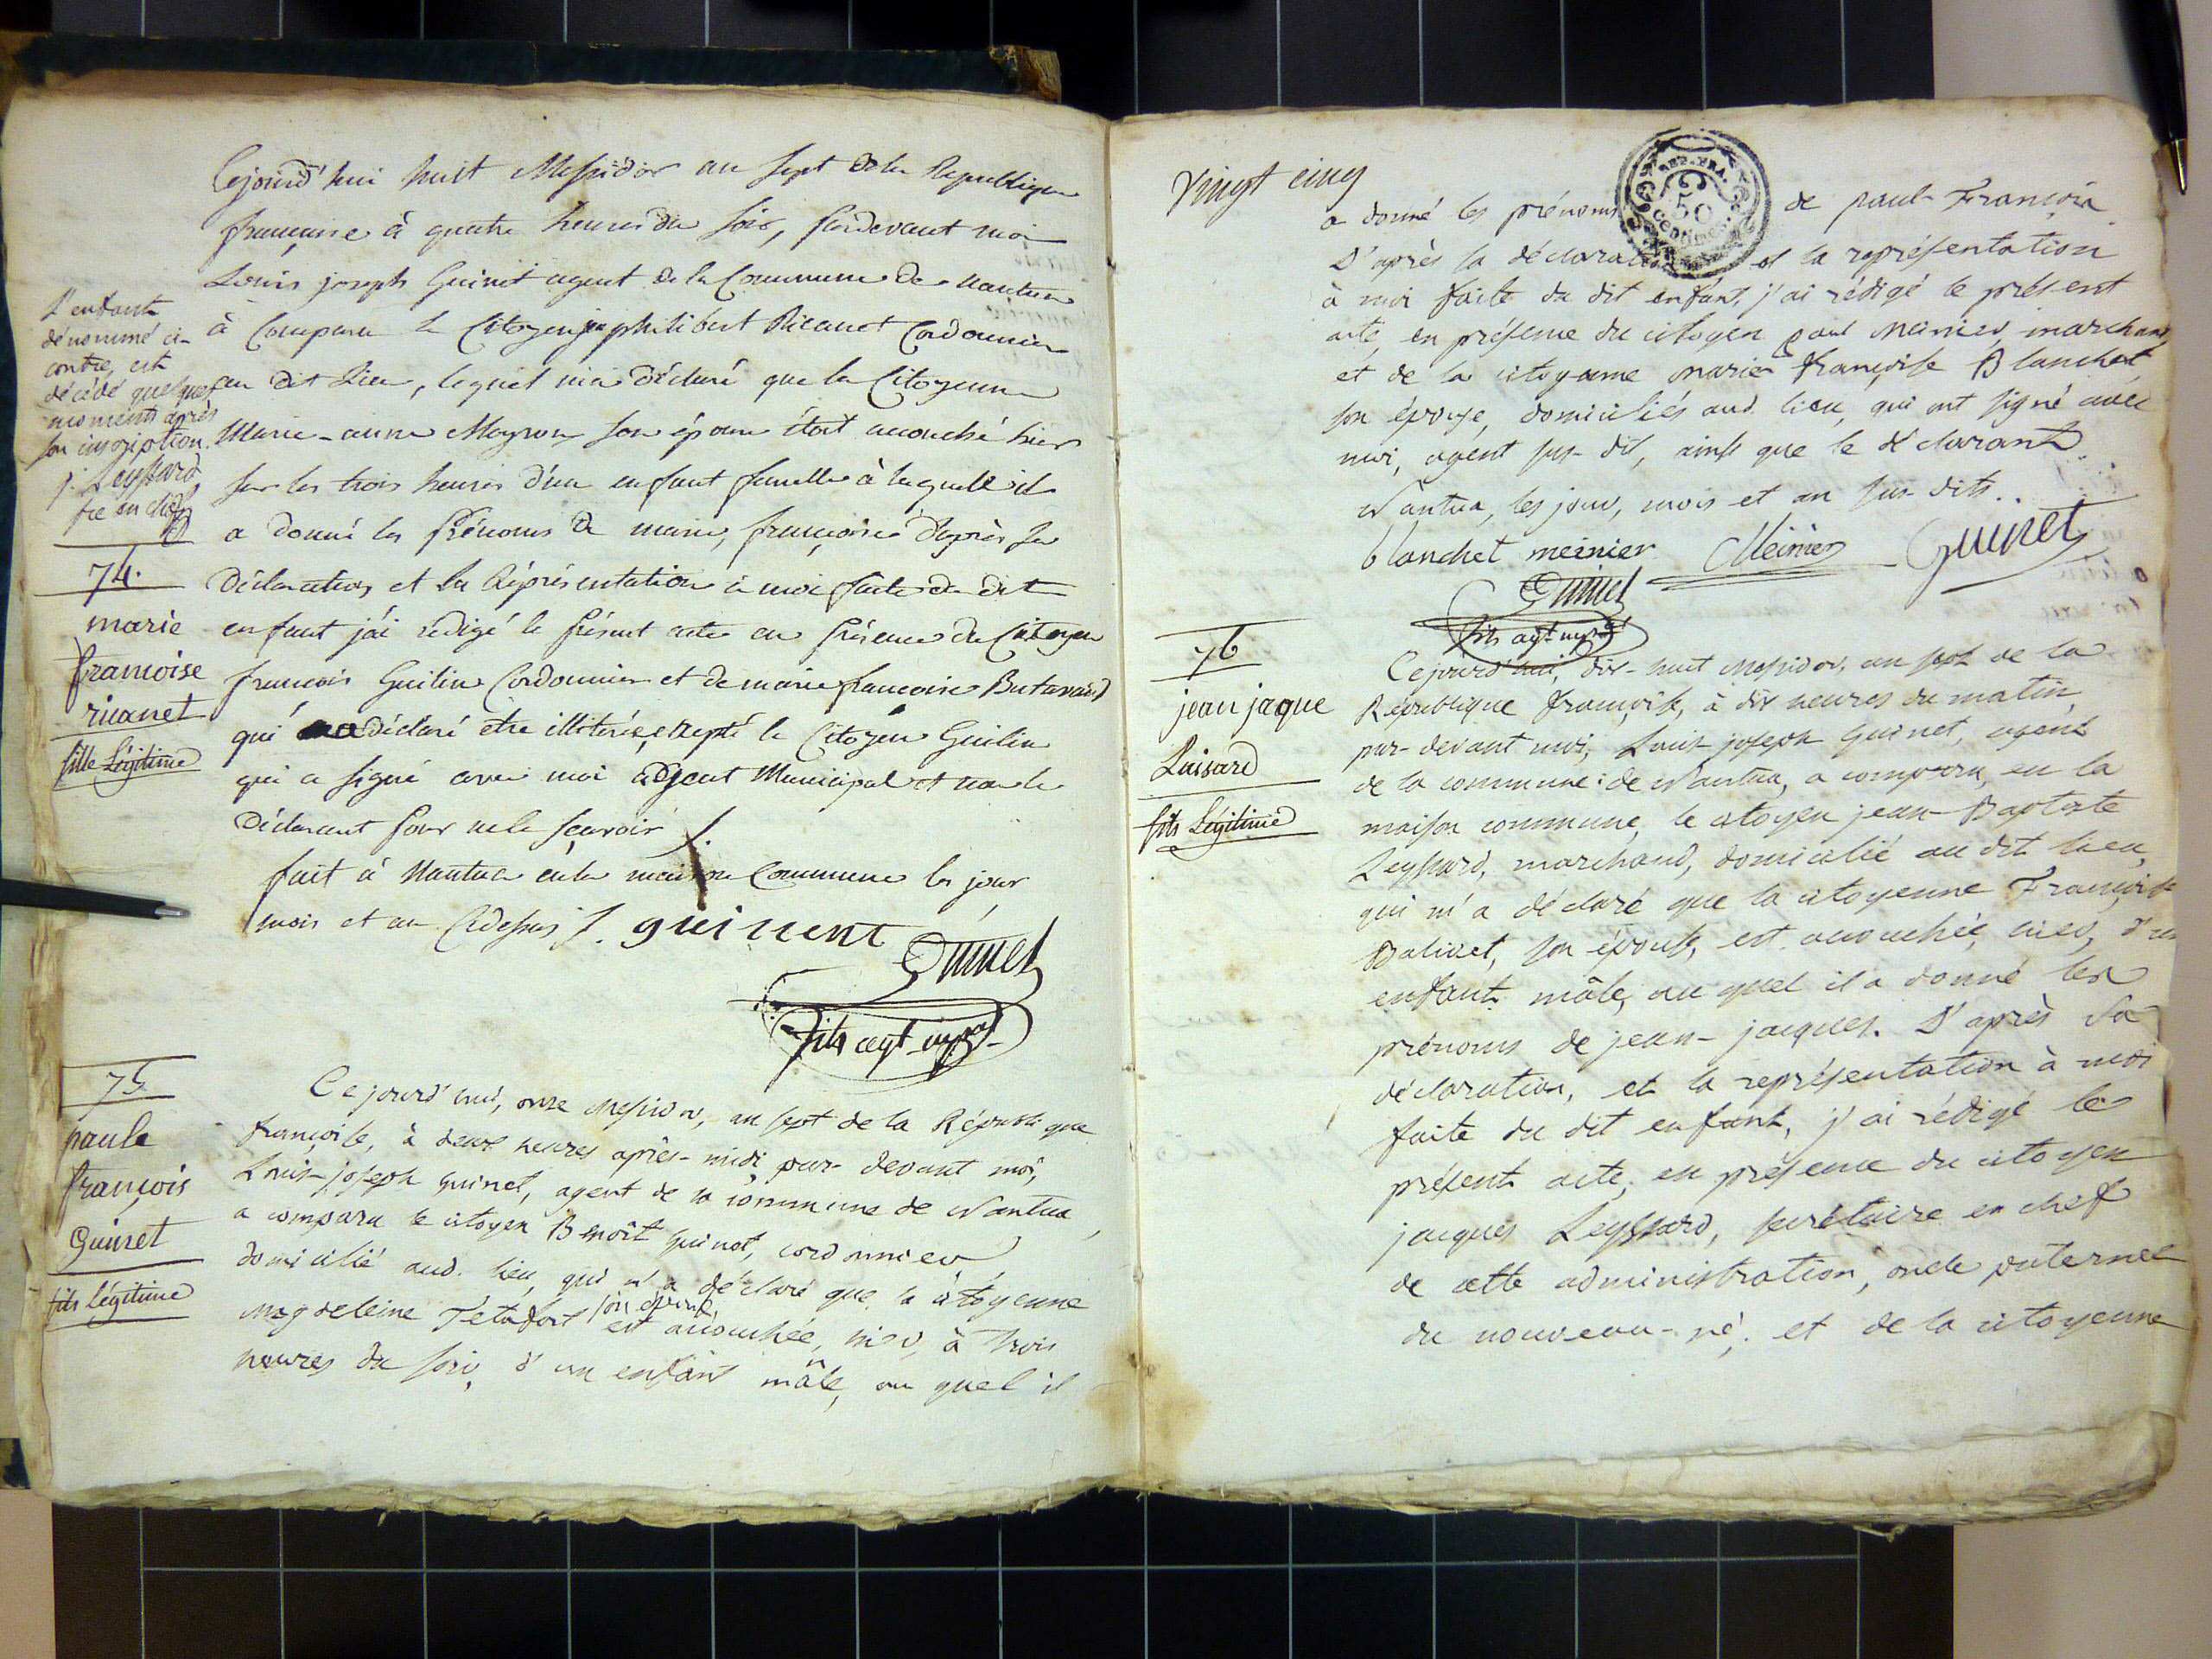 Cejourd'hui huit Messidor an sept de la Republique
francaise à quatre heures du soir, pardevant moi
Louis joseph Guinet agent de la Commune de Nantua
à Comparu le Citoyen philibert Ricanet Cordonnier
au dit Lieu, lequel m'a déclaré que la Citoyenne
Marie-anne Moyron son épouse étoit accouché hier
sur les trois heures d'un enfant femelle à laquelle il
a donné les Prénoms de marie, françoise d'après sa
Déclaration et la Représentation à moi faite du dit
enfant j'ai rédigé le présent acte en présence du Citoyen
francois Guilin Cordonnier et de marie francoise Butavand
qui déclaré etre illitérés, excepté le Citoyen Guilin
qui a signé avec moi adjent Municipal et non le
Déclarant pour ne le sçavoir
fait à Nantua en la maison Commune les jour
mois et an Cidessus f. guinent
Guinet
fils agt mpal
L'enfant
dénommé ci-
contre, est
décédé quelques
moments après
son inscription.
j. Leyssard,
sre en chef
74.
marie
francoise
ricanet
fille Légitime
75
paule
françois
Guinet
fils Légitime
Ce jourd'hui, onze Messidor, an sept de la République
françoise, à deux heures après-midi par-devant moi,
Louis-joseph Guinet, agent de la commune de Nantua,
a comparu le citoyen Benoît Guinet, cordonnier
domicilié aud. lieu, qui m'a déclaré que la citoyenne
Magdeleine Tétafort son épouse, est accouchée, hier, à trois
heures du soir, d'un enfant mâle, au quel il
Vingt cinq
REP. FRA.
50
centimes
a donné les prénoms de paul-François
D'après la déclaration et la représentation
à moi faite du dit enfant, j'ai rédigé le présent
acte, en présence du citoyen paul Meinier, marchand
et de la citoyenne marie françoise Blanchet,
son épouse, domiciliés aud. lieu, qui ont signé avec
moi, agent sus-dit, ainsi que le déclarant.
Nantua, les jour, mois et an sus-dits.
blanchet meinier Meinier Guinet
Guinet
fils agt mpal
76
jean jaque
Laisard
fils Légitime
Cejourd'hui, dix-huit Messidor, an sept de la
République françoise, à dix heures du matin,
par-devant moi, Louis-joseph Guinet, agent
de la commune de Nantua, a comparu, en la
maison commune, le citoyen jean-Baptiste
Leyssard, marchand, domicilié au dit lieu,
qui m'a déclaré que la citoyenne Françoise
Balivet, son épouse, est accouchée, hier, d'un
enfant mâle, au quel il a donné les
prénoms de jean-jacques. D'après sa
déclaration, et la représentation à moi
faite du dit enfant, j'ai rédigé le
présent acte, en présence du citoyen
jacques Leyssard, secrétaire en chef
de cette administration, oncle paternel
du nouveau-né; et de la citoyenne